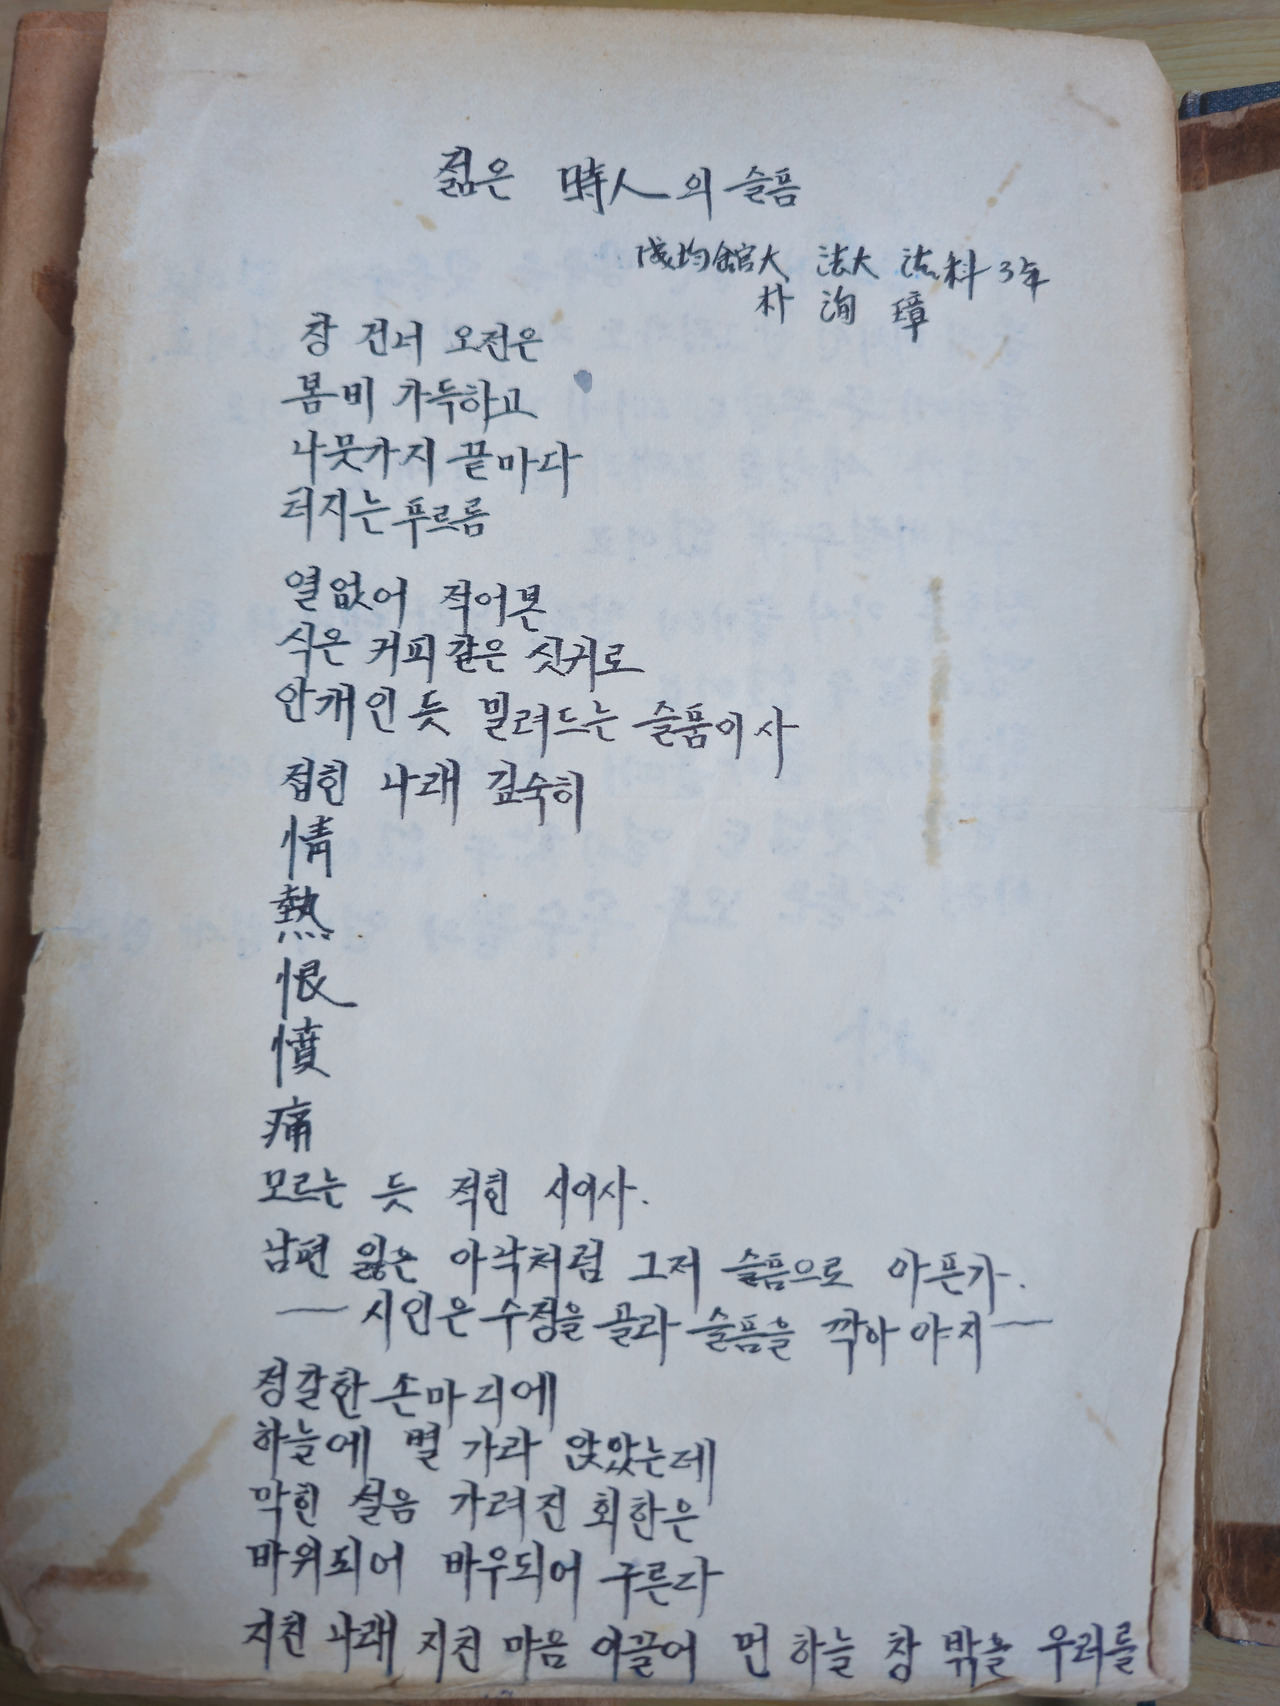 젊은 時人의 슬픔
成均館大 法大 法科 3年
朴 洵 璋
창 건너 오전은
봄비 가득하고
나뭇가지 끝마다
터지는 푸르름
열없어 적어본
식은 커피같은 싯귀로
안개인 듯 밀려드는 슬픔이사
접힌 나래 깊숙히
情
熱
恨
憤
痛
모르는 듯 적힌 시어사.
남편 잃은 아낙처럼 그저 슬픔으로 아픈가.
— 시인은 수정을 골라 슬픔을 깍아 야지 —
정갈한 손마디에
하늘에 별 가라 앉았는데
막힌 설음 가려진 회한은
바위되어 바우되어 구른다
지친 나래 지친 마음 이끌어 먼 하늘 창 밖을 우러를